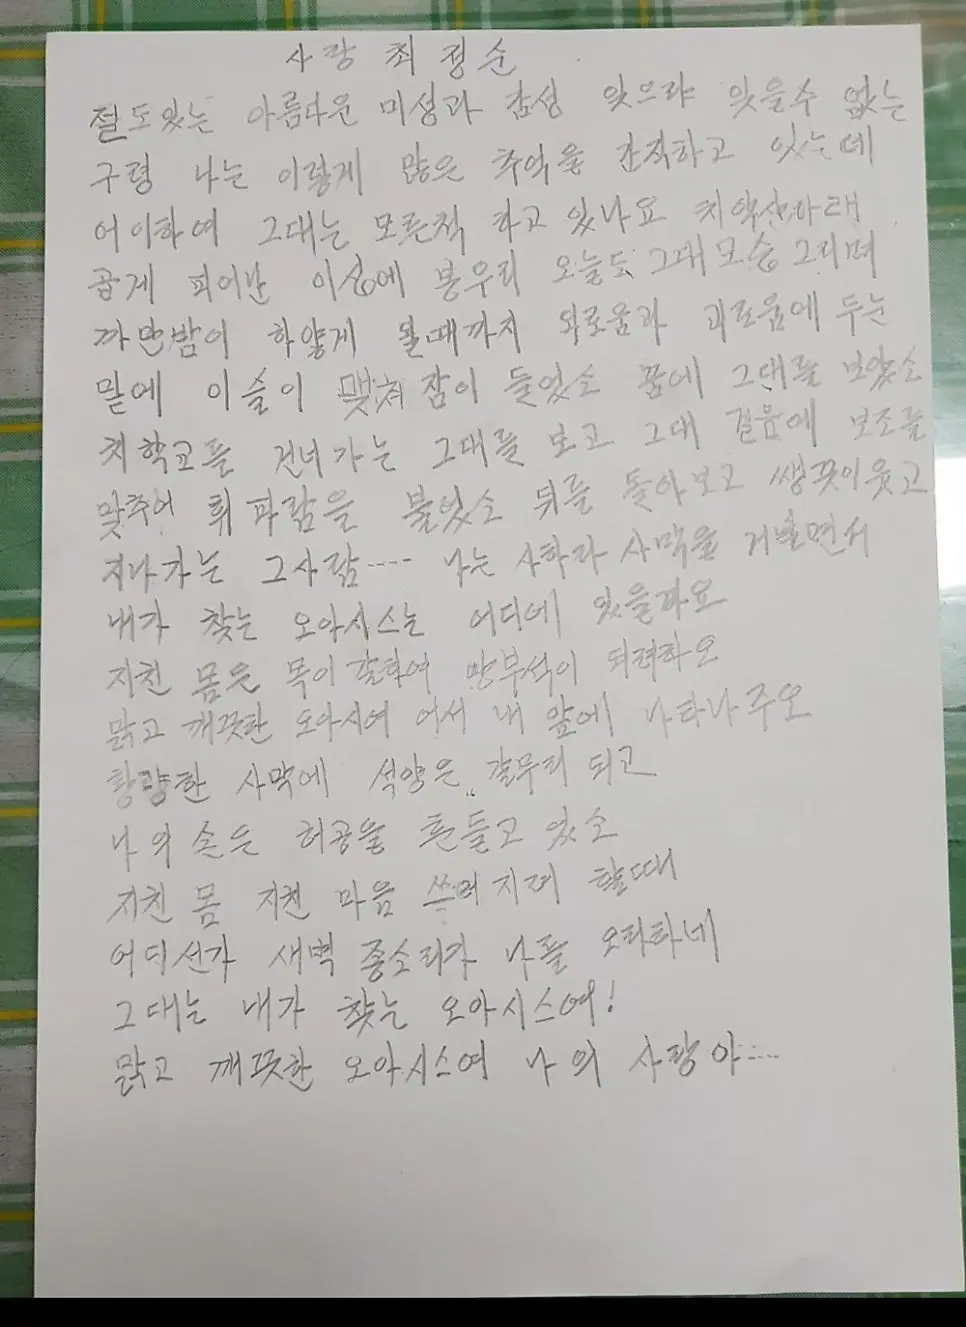 사랑 최정순
절도있는 아름다운 미성과 감성 잊으랴 잊을수 없는
구령 나는 이렇게 많은 추억을 간직하고 있는데
어이하여 그대는 모른척 하고 있나요 치악산아래
곱게 피어난 이성에 봉우리 오늘도 그대모습그리며
까만밤이 하얗게 될때까지 외로움과 괴로움에 두눈
밑에 이슬이 맺혀 잠이 들었소 꿈에 그대를 보았소
치학교를 건너가는 그대를 보고 그대 걸음에 보조를
맞추어 휘파람을 불었소 뒤를 돌아보고 쌩끗이웃고
지나가는 그사람···· 나는 사하라 사막을 거닐면서
내가 찾는 오아시스는 어디에 있을까요
지친 몸은 목이갈하여 망부석이 되려하오
맑고 깨끗한 오아시여 어서 내 앞에 나타나주오
황량한 사막에 석양은 갈무리 되고
나의 손은 허공을 흔들고 있소
지친 몸 지친 마음 쓰러지려 할때
어디선가 새벽 종소리가 나를 오라하네
그대는 내가 찾는 오아시스여!
맑고 깨끗한 오아시스여 나의 사랑아····